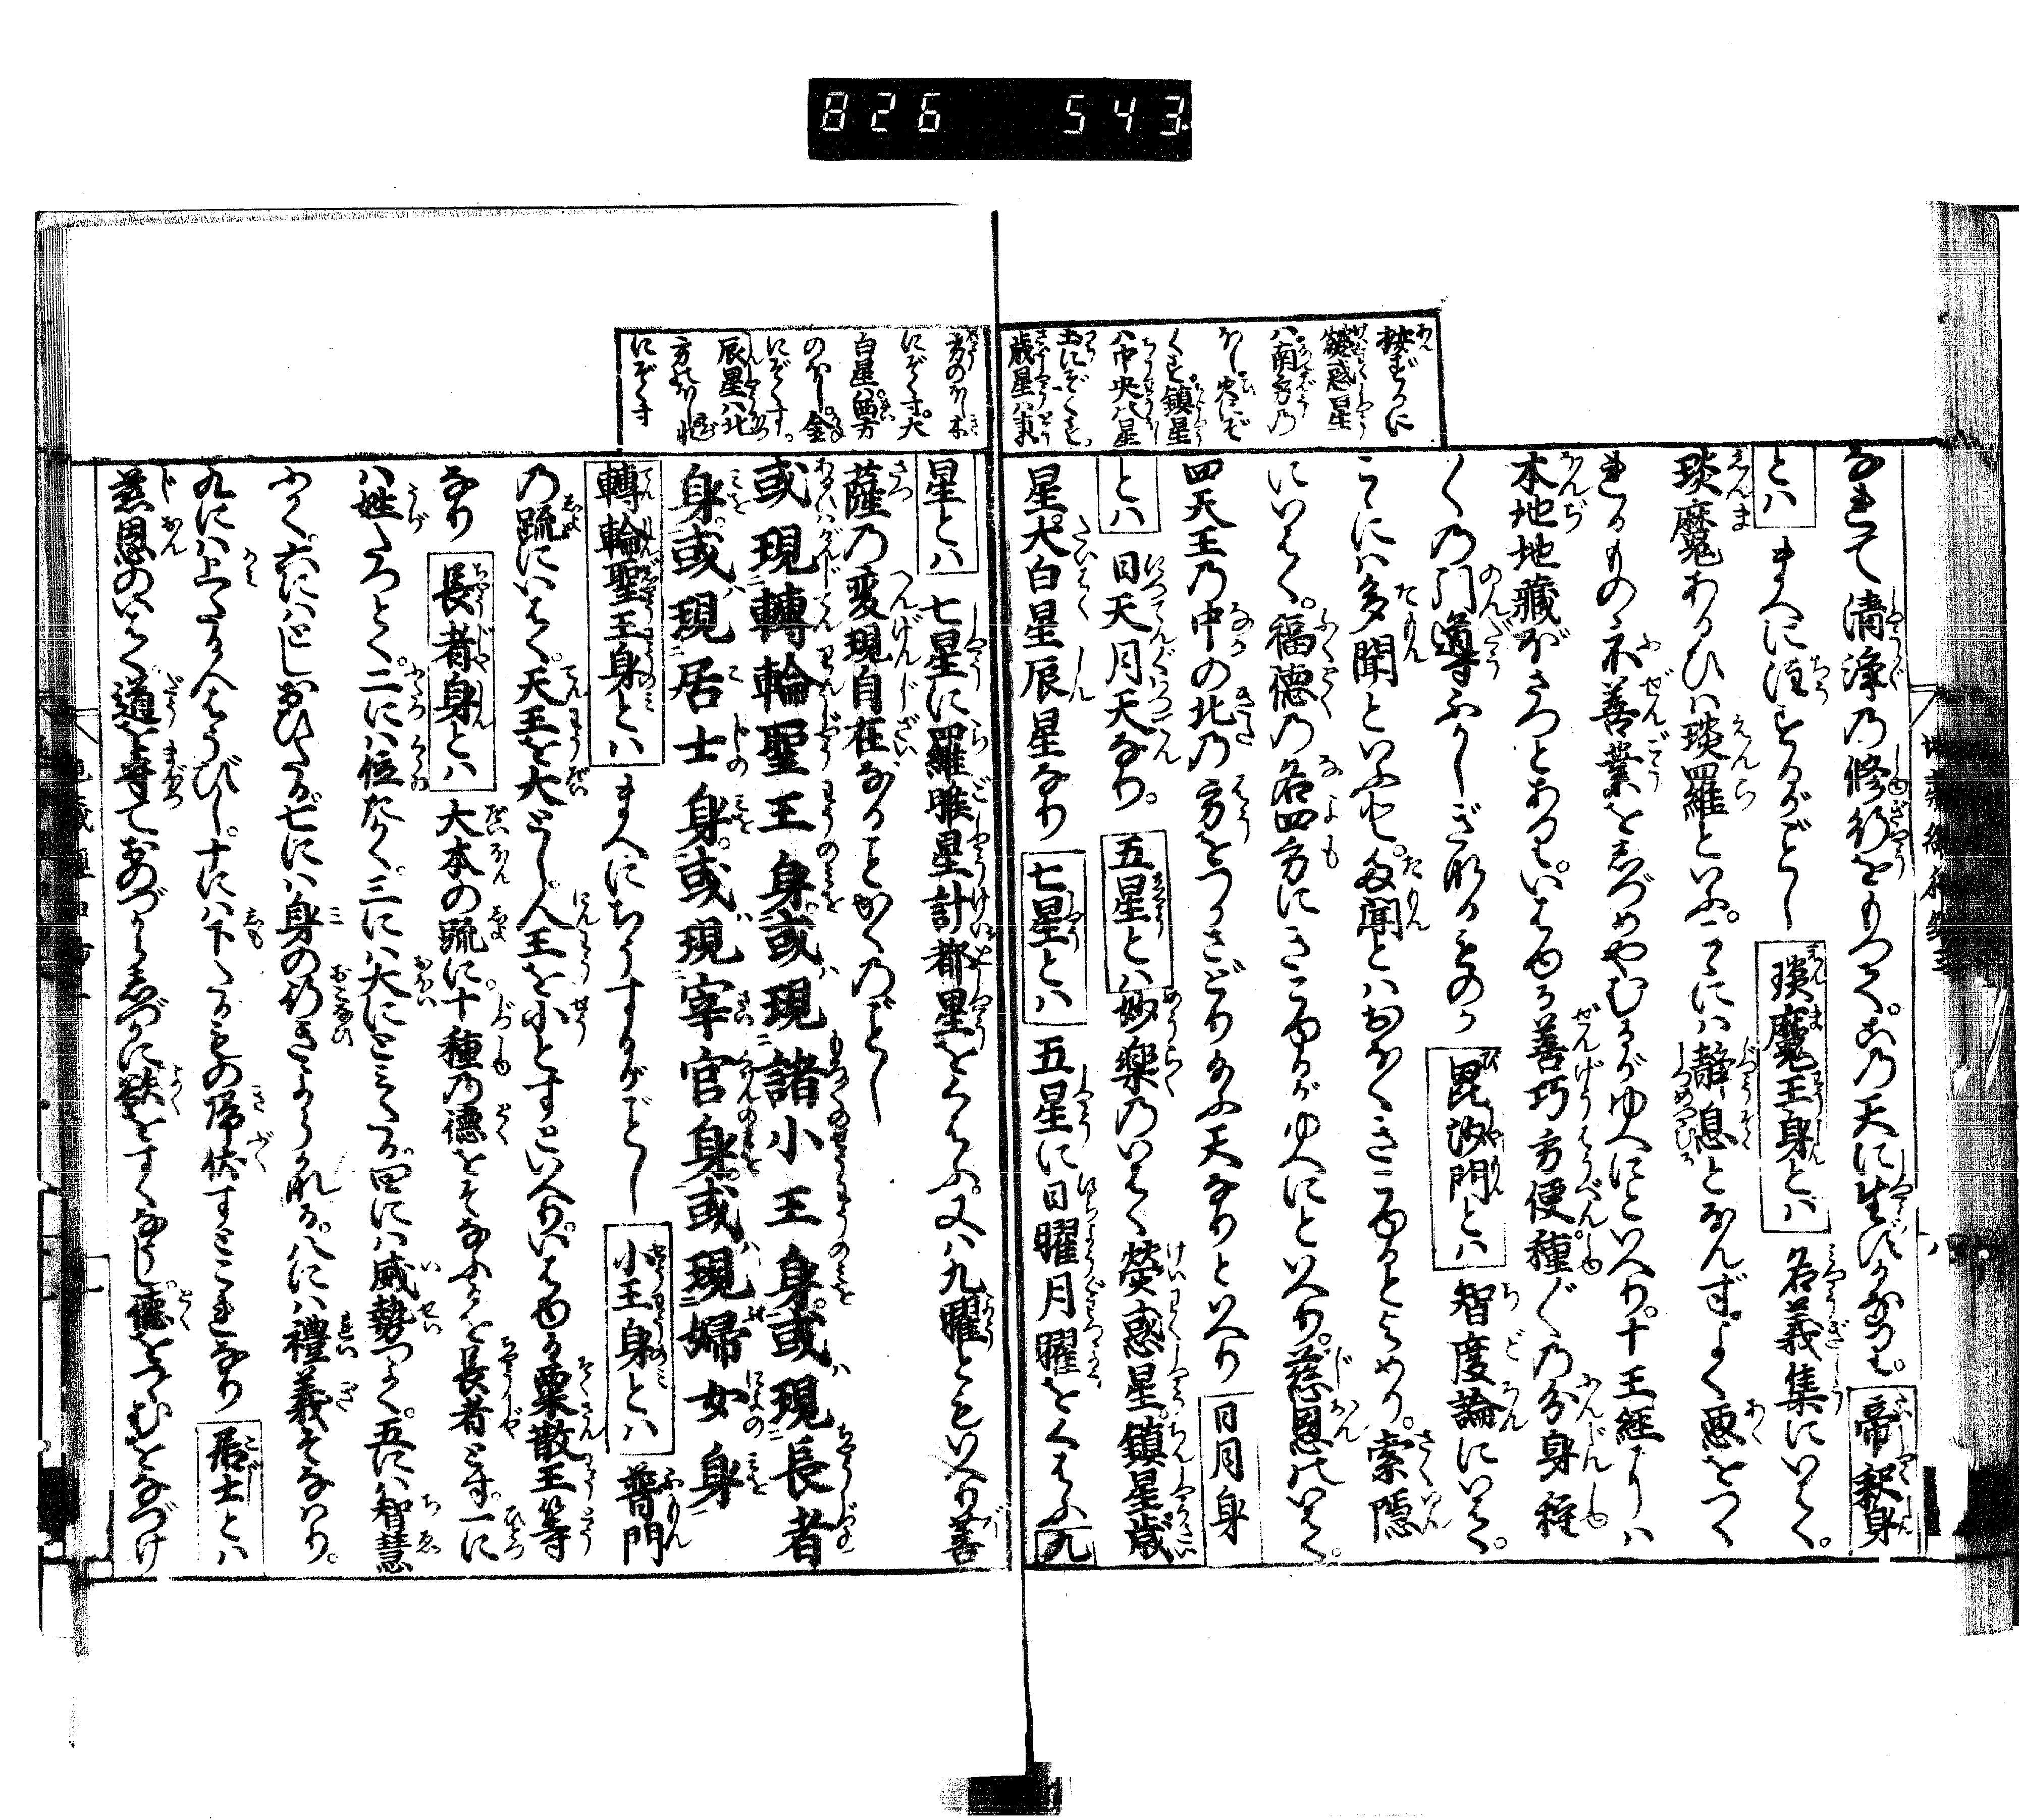 826 543
按ずるに
熒惑星
ハ南方の
ほし火にぞ
くす鎮星
ハ中央の星
土にぞくす
歳星ハ東
なれて清浄乃修行をもつて此乃天に生ずるなり帝釈身
とハまへに注するがごとし琰魔王身とハ名義集にいはく
琰魔あるひハ琰羅といふこゝにハ静息とほんずよく悪をつく
れるものゝ不善業をしづめやむるがゆへにといへり十王経よりハ
本地地蔵ぼさつとありいはゆる善巧方便種〴〵乃分身種
〳〵乃門導ふかしぎなるものか毘沙門とハ智度論にいはく
こゝにハ多聞といふ也多聞とハおほくきこゆるとよめり索隠
にいはく福徳乃名四方にきこゆるがゆへにといへり慈恩のいはく
四天王乃中の北乃方をつかさどり給ふ天なりといへり日月身
とハ日天月天なり五星とハ妙楽乃いはく熒惑星鎮星歳
星大白星辰星なり七星とハ五星に日曜月曜をくはふ九
方のほし木
にぞくす大
白星ハ西方
のほし金
にぞくす
辰星ハ北
方のほし水
にぞくす
星とハ七星に羅睺星計都星をくはふ又ハ九曜ともいへり菩
薩乃変現自在なることかくのごとし
或現轉輪聖王身或現諸小王身或現長者
身或現居士身或現宰官身或現婦女身
轉輪聖王身とハまへにちうするがごとし小王身とハ普門
乃疏にいはく天王を大とし人王を小とすといへりいはゆる粟散王等
なり長者身とハ大本の疏に十種乃徳をそなふるを長者とす一に
ハ姓たつとく二にハ位たかく三にハ大にとみたる四にハ威勢つよく五にハ智慧
ふかく六にハとしおひたる七にハ身の行きよらかなる八にハ禮義そなハり
九にハ上たる人はうびし十にハ下たるもの帰伏すとこれなり居士とハ
慈恩のいはく道を守ておのづからしづかに欲をすくなうし徳をつゝむをなづけ